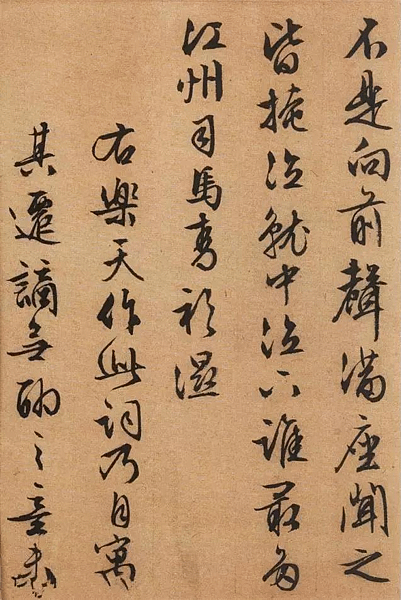 不是向前聲滿座聞之
皆掩泣就中泣下誰最多
江州司馬青衫濕
右樂天作此詞乃自寓
其遷謫無聊之意未